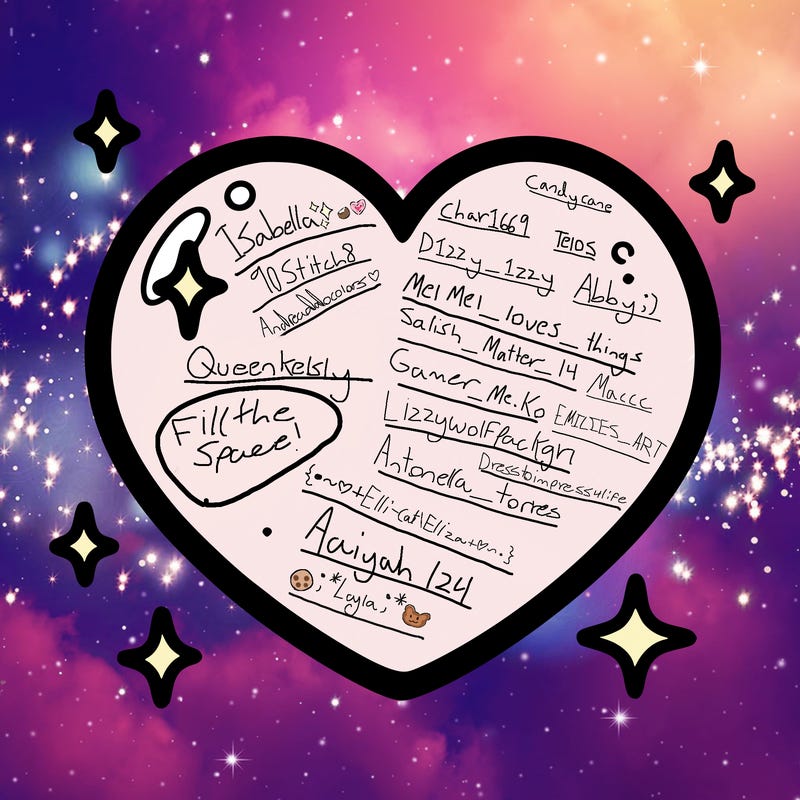 Isabella
90Stitch8
Queenkelsly
Fill the
Space!
Candycane
Char1669
Telos
D1zzy_1zzy
Abby;)
Mel Mel_loves_things
Salish_Matter_14
Maccc
Gamer_Me.Ko
EMILIES_ART
Lizzywolfpackgn
Dresstoimpress4life
Antonella_torres
{•~♡+Elli-cat\Eliza+♡~•}
Aaiyah 124
;*Layla;*